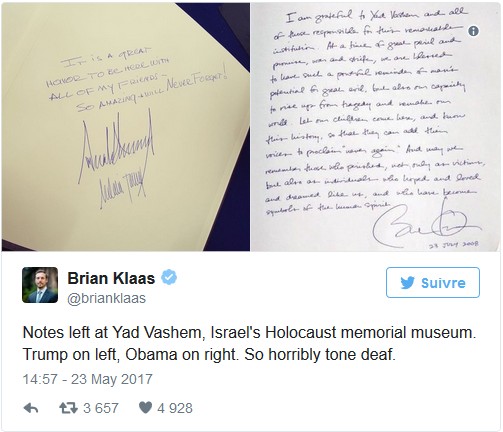 IT IS A GREAT
HONOR TO BE HERE WITH
ALL OF MY FRIENDS -
SO AMAZING + WILL NEVER FORGET!
Melania Trump
I am grateful to Yad Vashem and all
of those responsible for this remarkable
institution. At a time of great peril and
promise, war and strife, we are blessed
to have such a powerful reminder of man's
potential for great evil, but also our capacity
to rise up from tragedy and remake our
world. Let our children come here, and know
this history, so that they can add their
voices to proclaim "never again." And may we
remember those who perished, not only as victims,
but also as individuals who hoped and loved
and dreamed like us, and who have become
symbols of the human spirit.
23 JULY 2008
Brian Klaas
@brianklaas
Suivre
Notes left at Yad Vashem, Israel's Holocaust memorial museum.
Trump on left, Obama on right. So horribly tone deaf.
14:57 - 23 May 2017
3 657
4 928